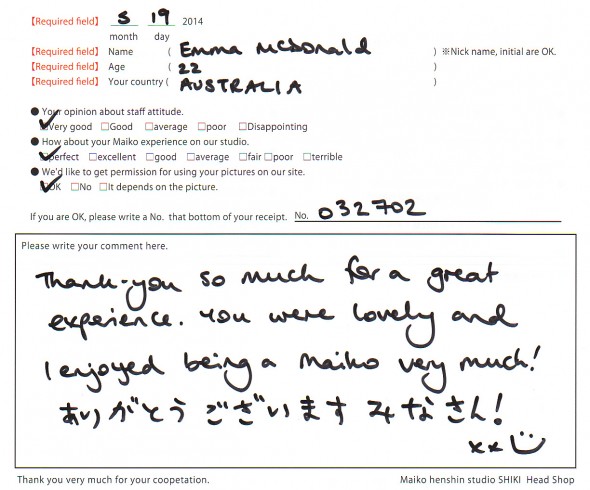 [Required field] 5 19 2014
month day
[Required field] Name ( Emma McDonald ) ※Nick name, initial are OK.
[Required field] Age ( 22 )
[Required field] Your country ( AUSTRALIA )
● Your opinion about staff attitude.
☑Very good □Good □average □poor □Disappointing
● How about your Maiko experience on our studio.
☑perfect □excellent □good □average □fair □poor □terrible
● We'd like to get permission for using your pictures on our site.
☑OK □No □It depends on the picture.
If you are OK, please write a No. that bottom of your receipt. No. 032702
Please write your comment here.
Thank-you so much for a great
experience. You were lovely and
I enjoyed being a Maiko very much!
ありがとう ございます みなさん!
xx
Thank you very much for your coopetation. Maiko henshin studio SHIKI Head Shop